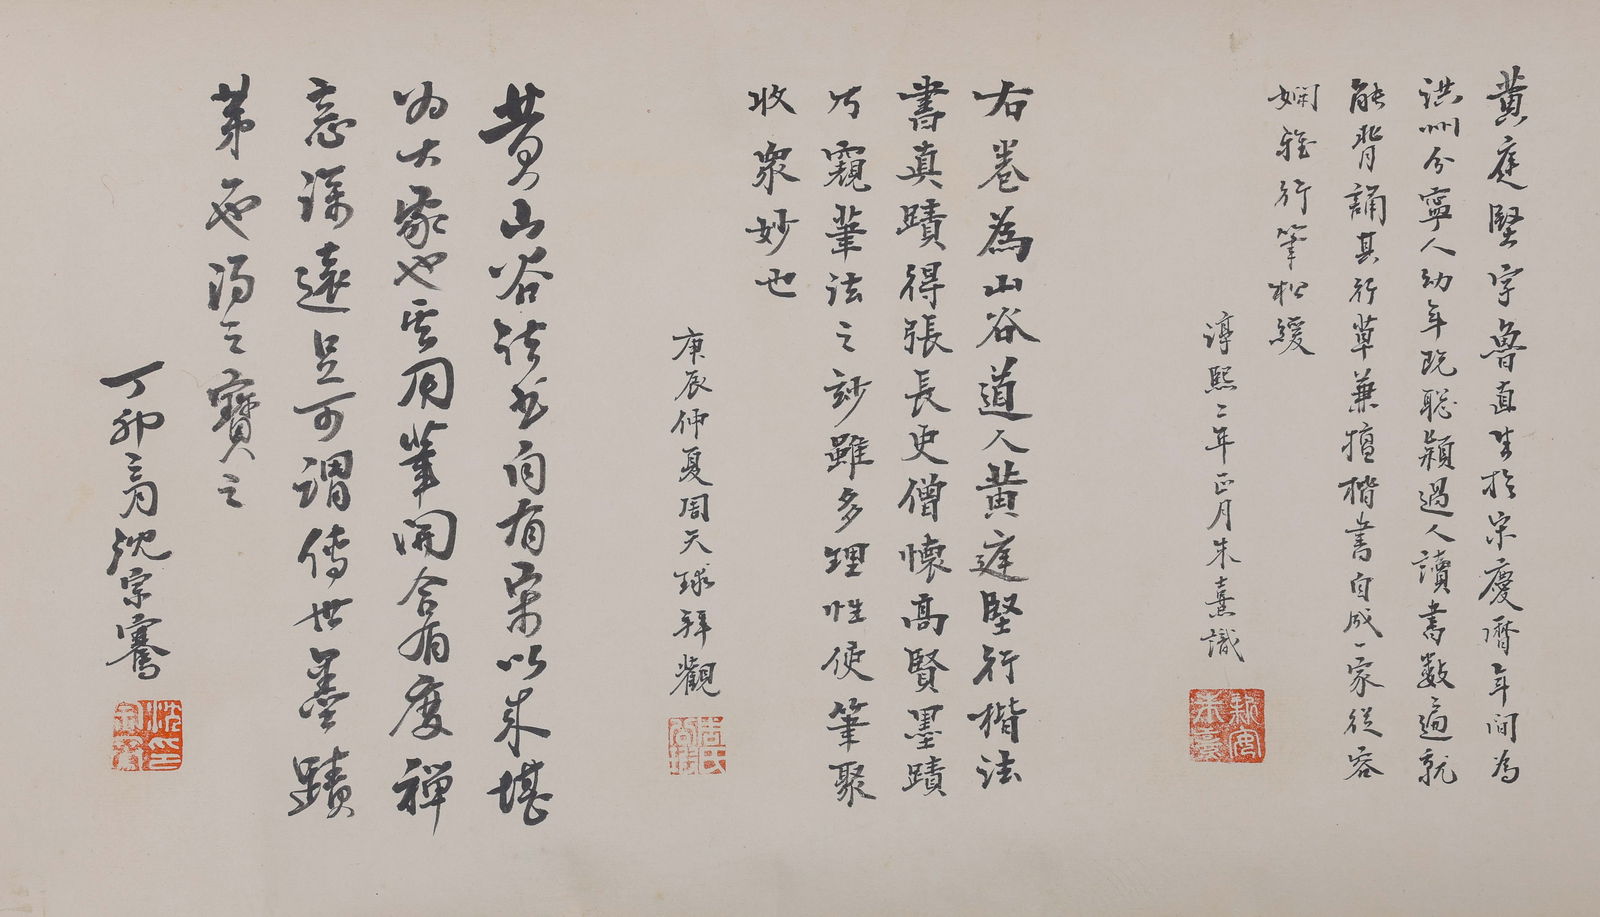 黃庭堅字魯直生於宋慶曆年間為
洪州分寧人幼年既聰穎過人讀書數遍就
能背誦其行草兼擅楷書自成一家從容
嫻雅行筆松緩
淳熙二年正月朱熹識
新安朱熹
右卷為山谷道人黃庭堅行楷法
書真蹟得張長史僧懷高賢墨蹟
乃窺筆法之妙雖多理性使筆聚
收眾妙也
庚辰仲夏周天球拜觀
周氏公瑕
黃山谷法書自有宋以來堪
為大家也其用筆開合有度禪
意深遠足可謂傳世墨蹟
第也得之寶之
丁卯 沈宗騫
沈印宗騫